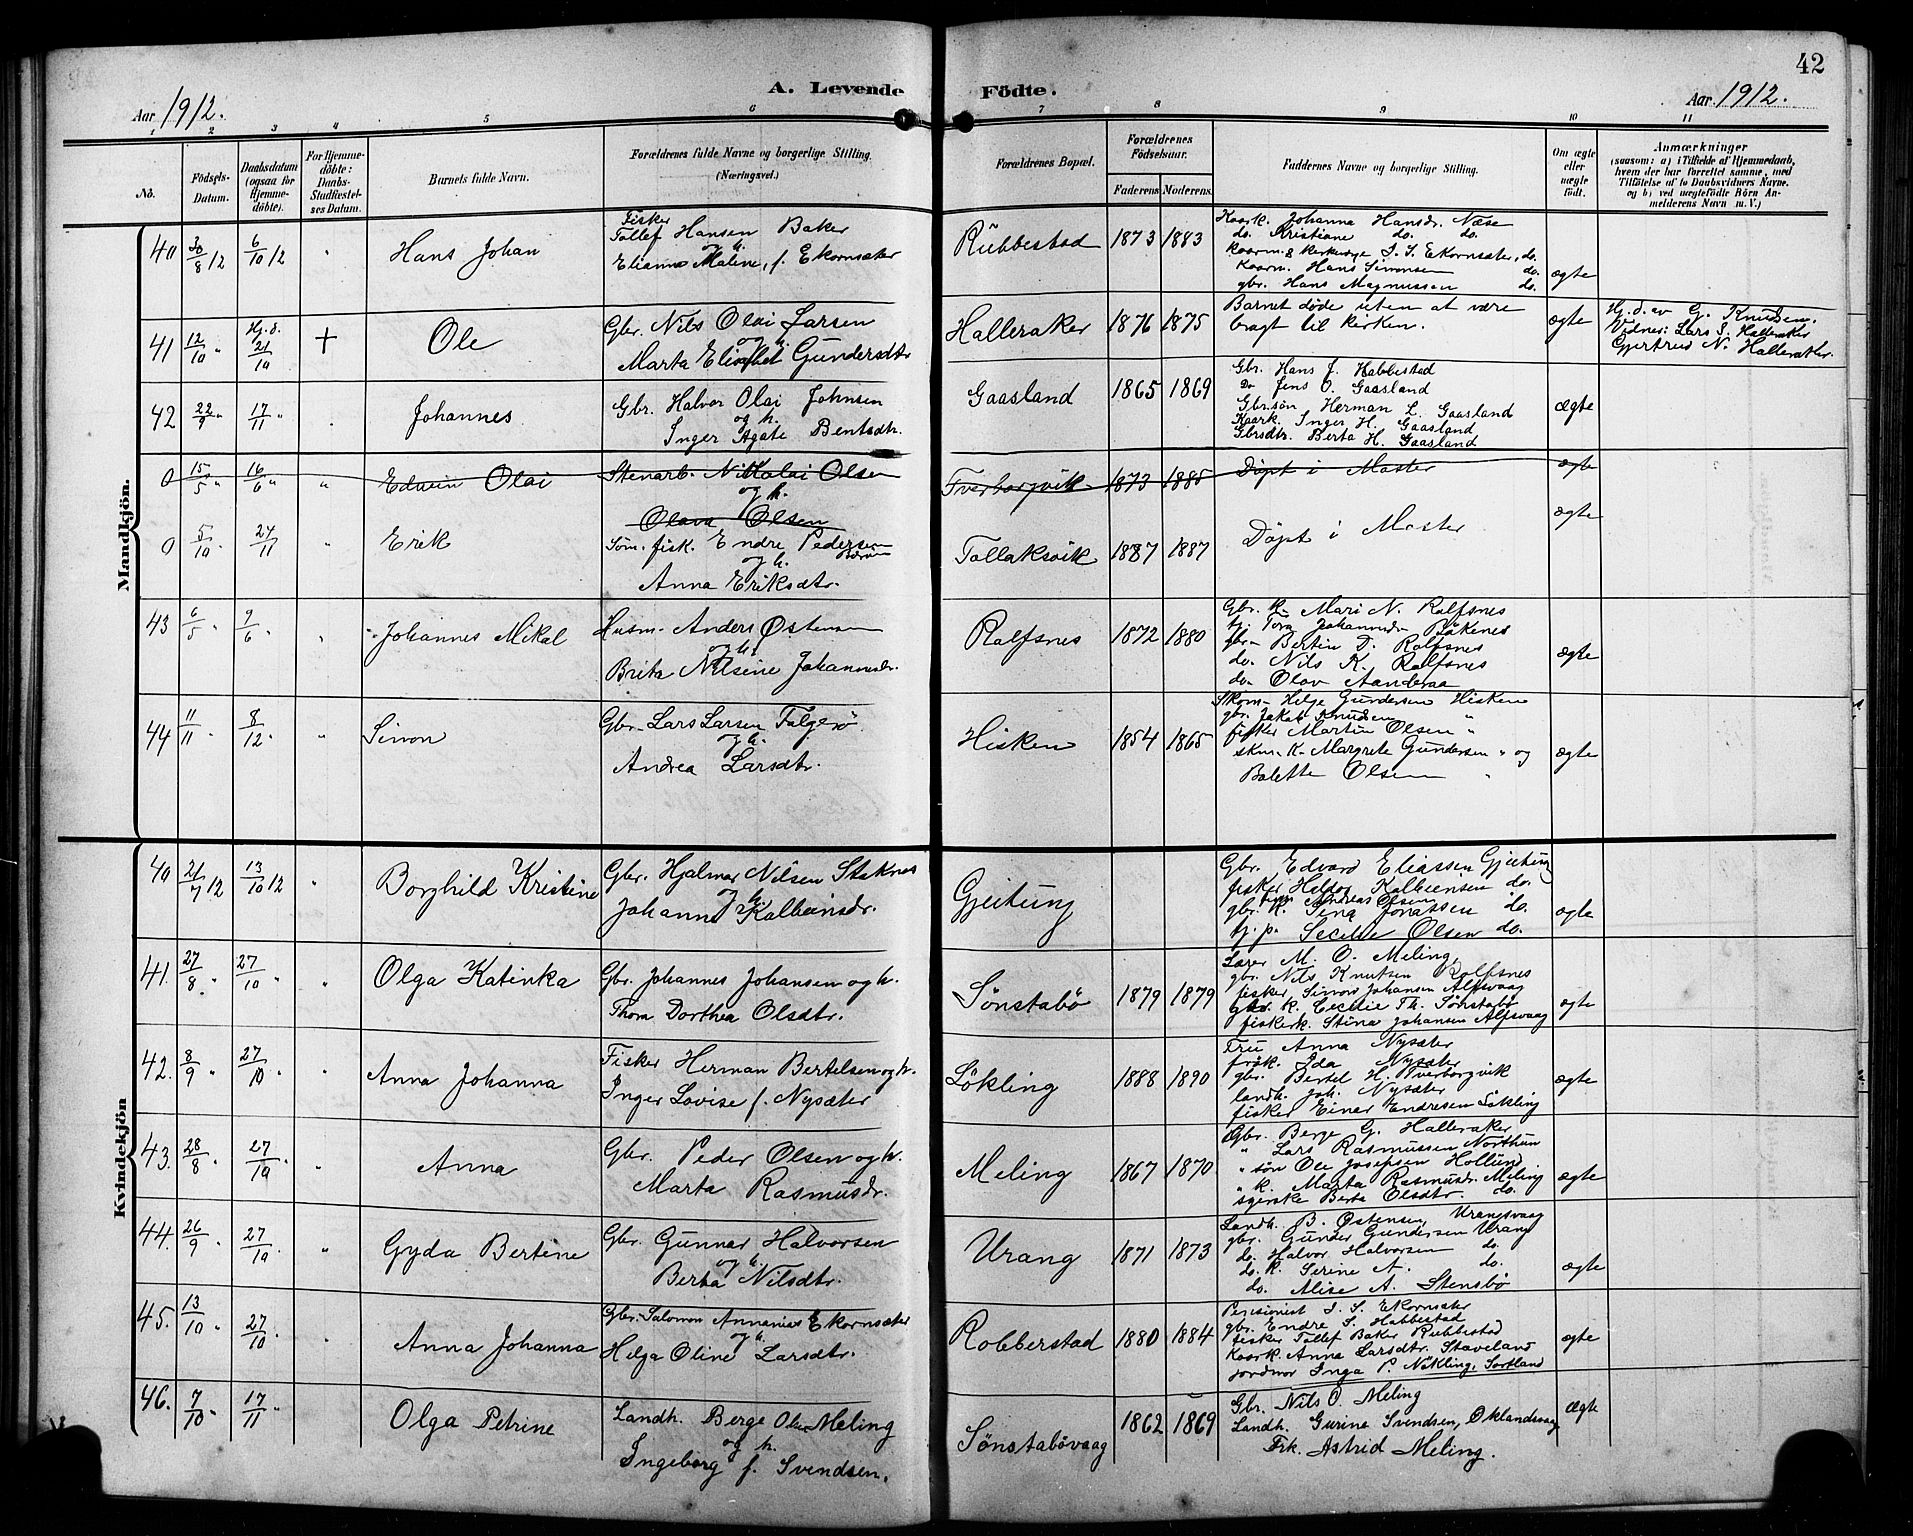 42
A. Levende Födte.
Aar 1912.
Aar 1912.
1 2 3 4 5 6 7 8 9 10 11
No.
Födsels-Datum.
Daabsdatum (ogsaa for Hjemmedöbte).
For Hjemmedöbte: Daabs-Stadfæstelses Datum.
Barnets fulde Navn.
Forældrenes fulde Navne og borgerlige Stilling. (Næringsvei.)
Forældrenes Bopæl.
Forældrenes Födselsaar.
Faderens Moderens.
Faddernes Navne og borgerlige Stilling.
Om ægte eller uægte födt.
Anmærkninger
(saasom: a) i Tilfælde af Hjemmedaab, hvem der har forrettet samme, med Tilföielse af to Daabsvidners Navne. og b) ved uægtefödte Börn Anmelderens Navn m. V.)
Mandkjön.
40 30/8 12 6/10 12 " Hans Johan
Fisker
Tollef Hansen Baker
og h.
Elianna Maline, f. Ekornsæter
Rubbestad 1873 1883
Kaark. Johanna Hansdr. Næse
do. Kristiane do. do.
Kaarm. & kirkeverge I. S. Ekornsæter, do.
Kaarm. Hans Simonsen do.
gbr. Hans Magnussen do.
ægte
41 12/10 " Hj.d. 21/10 + Ole
Gbr. Nils Olai Larsen
og h.
Marta Elisabet Gundersdtr
Halleraker 1876 1875
Barnet døde uten at være
bragt til kirken.
ægte
Hj.d. av G. Knudsen.
Vidner: Lars S. Halleraker
Gjertrud N. Halleraker.
42 22/9 " 17/11 " Johannes
Gbr. Halvor Olai Johnsen
og h.
Inger Agate Bentsdtr.
Gaasland 1865 1869
Gbr. Hans J. Habbestad
Do Jens O. Gaasland
Gbr.søn Herman L. Gaasland
Kaark. Inger H. Gaasland
Gbrsdtr. Berta H. Gaasland
ægte
0 15/5 16/6 " " Edwin Olai
Stenarb. Nikolai Olsen
og h.
Olava Olsen
Tverborgvik 1873 1885 Döpt i Moster ægte
0 5/10 " 24/11 " Erik
Söm. fisk. Endre Pedersen
og h.
Anna Eriksdtr.
Tollaksvik 1887 1887 Döpt i Moster ægte
43 6/5 9/6 " Johannes Mikal
Husm. Anders Østensen
og h.
Brita Nilsine Johannesdr.
Rolfsnes 1872 1880
Gbr. k. Mari N. Rolfsnes
tj. Tora Johannesdr Bökenes
gbr. Bertin D. Rolfsnes
do. Nils K. Rolfsnes
do. Olav Aanderaa
ægte
44 11/11 " 8/12 " " Simon
Gbr. Lars Larsen Folgerö
og h.
Andrea Larsdtr.
Hisken 1854 1865
Skom. Helge Gundersen Hisken
gbr. Jakob Knudsen "
fisker Martin Olsen "
skm. k. Margrete Gundersen " og
Bolette Olsen "
ægte
Kvindekjön
40 21/7 12 13/10 12 " Borghild Kristine
Gbr. Hjalmar Nilsen Stoknes
og h.
Johanne Kolbeinsdr.
Gjeitung
Gbr. Edvard Eliassen Gjeitung
fisker Heldor Kolbeinsen do.
Andreas Olsen
gbr. k. Sina Jonassen do.
tj. p. Secelie Olsen do.
ægte
41. 27/8 " 27/10 " " Olga Katinka
Gbr. Johannes Johansen og h.
Thom Dorthea Olsdtr.
Sönstabö 1879 1879
Lærer M. O. Meling,
gbr. Nils Knutsen Rolfsnes
fisker Simon Johansen Alfsvaag
gbr. k. Cecilie Th. Sönstabö
fiskerk. Stina Johansen Alfsvaag
ægte
42. 8/9 " 27/10 " " Anna Johanna
Fisker Herman Bertelsen og h.
Inger Lovise f. Nysæter
Lökling 1888 1890
Fru Anna Nysæter
frøk. Ida Nysæter
gbr. Bertel H. Tverborgvik
landh. Joh. Nysæter
fisker Einar Endresen Lökling
ægte
43. 28/8 " 27/10 " " Anna
Gbr. Peder Olsen og h.
Marta Rasmusdr.
Meling 1867 1870
Gbr. Berge G. Halleraker
" Lars Rasmussen Northun
" søn Ole Josepsen Hollund
" k. Marta Rasmusdr. Meling
syerske Berta Olsdtr. do.
ægte
44. 26/9 " 27/10 " " Gyda Bertine
Gbr. Gunnar Halvorsen
og h.
Berta Nilsdtr.
Urang 1871 1873
Landh. B. Östensen, Urangsvaag
gbr. Gunder Gundersen Urang
do. Halvor Halvorsen do.
do. k. Serine A. do.
do. Alise A. Stensbö
ægte
45. 13/10 " 27/10 " Anna Johanna
Gbr. Salomon Annanias Ekornsæter
og h.
Helga Oline Larsdtr.
Robberstad 1880 1884
Pensionist I. S. Ekornsæter
gbr. Endre S. Habbestad
fisker Tollef Baker Rubbestad
Kaark. Anna Larsdtr. Staveland
jordmor Inga P. Nökling, Sortland
ægte
46. 7/10 " 17/11 " Olga Petrine
Landh. Berge Olsen Meling
og h.
Ingeborg f. Svendsen.
Sönstabövaag 1862 1869
Gbr. Nils O. Meling
Landh. Gurina Svendsen, Oklandsvaag
Frk. Astrid Meling.
ægte